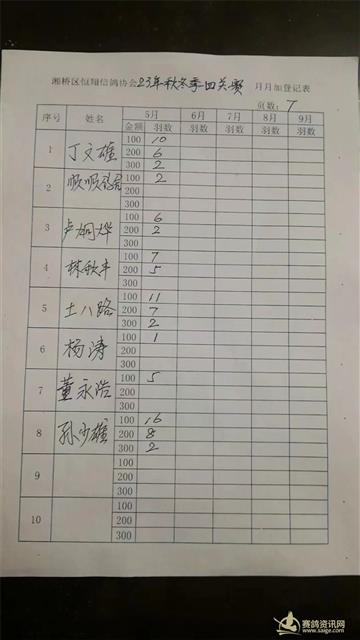 湘桥区恒翔信鸽协会23年秋冬季四关赛 月月加登记表
页数: 7
序号 姓名 5月 6月 7月 8月 9月
金额 羽数 羽数 羽数 羽数 羽数
1 丁文雄 100 10
200 6
300 2
2 顺顺鸽舍 100 2
200
300
3 卢炯烨 100 6
200 2
300
4 林敏丰 100 7
200 5
300
5 土八路 100 11
200 7
300 2
6 杨涛 100 1
200
300
7 董永浩 100 5
200
300
8 孙少雄 100 16
200 8
300 2
9 100
200
300
10 100
200
300
赛鸽资讯网
www.saige.com